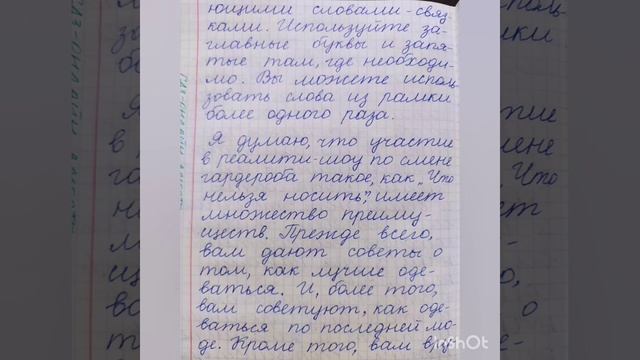 ющими словами-связ-
ками. Используйте за-
главные буквы и запя-
тые там, где необходи-
мо. Вы можете исполь-
зовать слова из рамки
более одного раза.
Я думаю, что участие
в реалити-шоу по смене
гардероба такое, как „Что
нельзя носить", имеет
множество преиму-
ществ. Прежде всего,
вам дают советы о
том, как лучше оде-
ваться. И, более того,
вам советуют, как оде-
ваться по последней мо-
де. Кроме того, вам